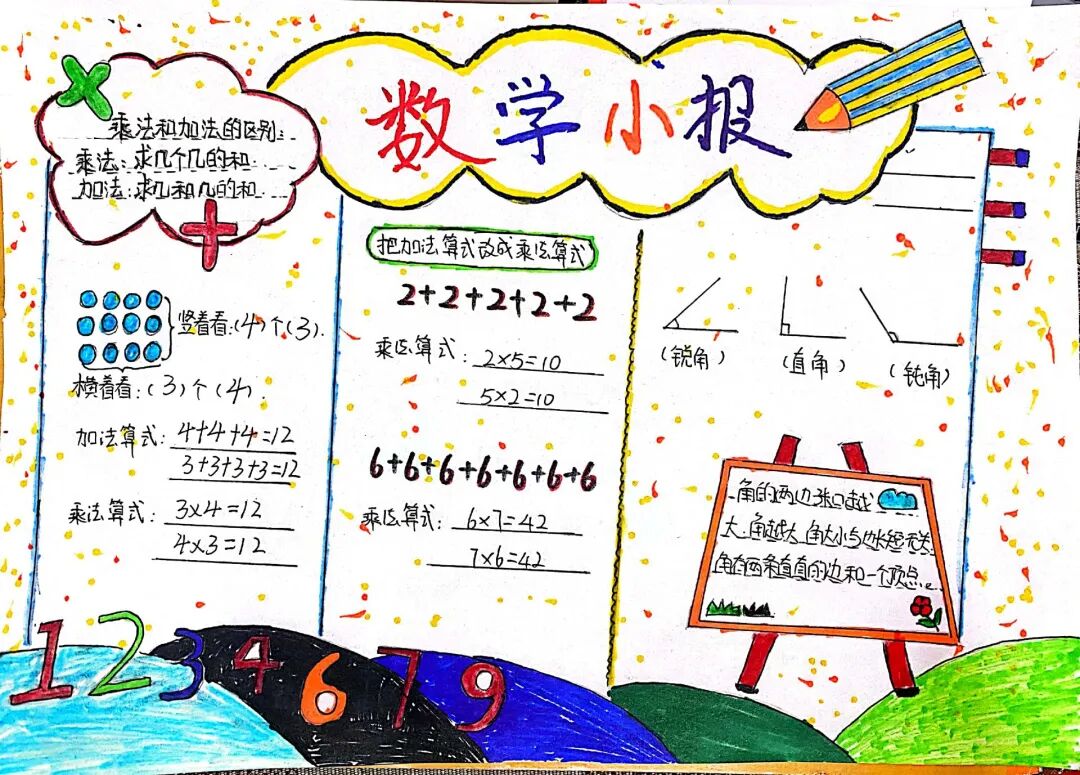 数学小报
乘法和加法的区别:
乘法:求几个几的和.
加法:求几和几的和.
竖着看:(4)个(3).
横着看:(3)个(4).
加法算式: 4+4+4=12
3+3+3+3=12
乘法算式: 3×4=12
4×3=12
把加法算式改成乘法算式
2+2+2+2+2
乘法算式: 2×5=10
5×2=10
6+6+6+6+6+6+6
乘法算式: 6×7=42
7×6=42
(锐角) (直角) (钝角)
角的两边张口越
大.角越大.角大小与边长短无关.
角有两条直直的边和一个顶点.
1 2 3 4 6 7 9